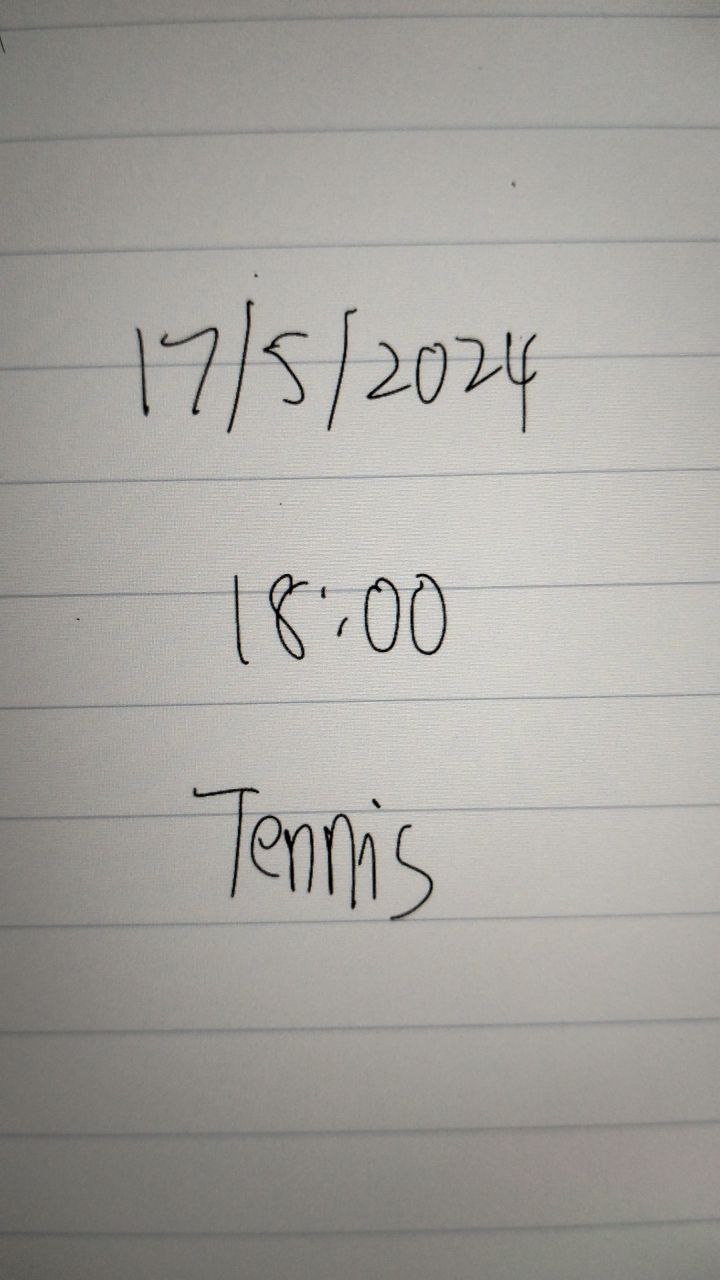 17/5/2024
18:00
Tennis